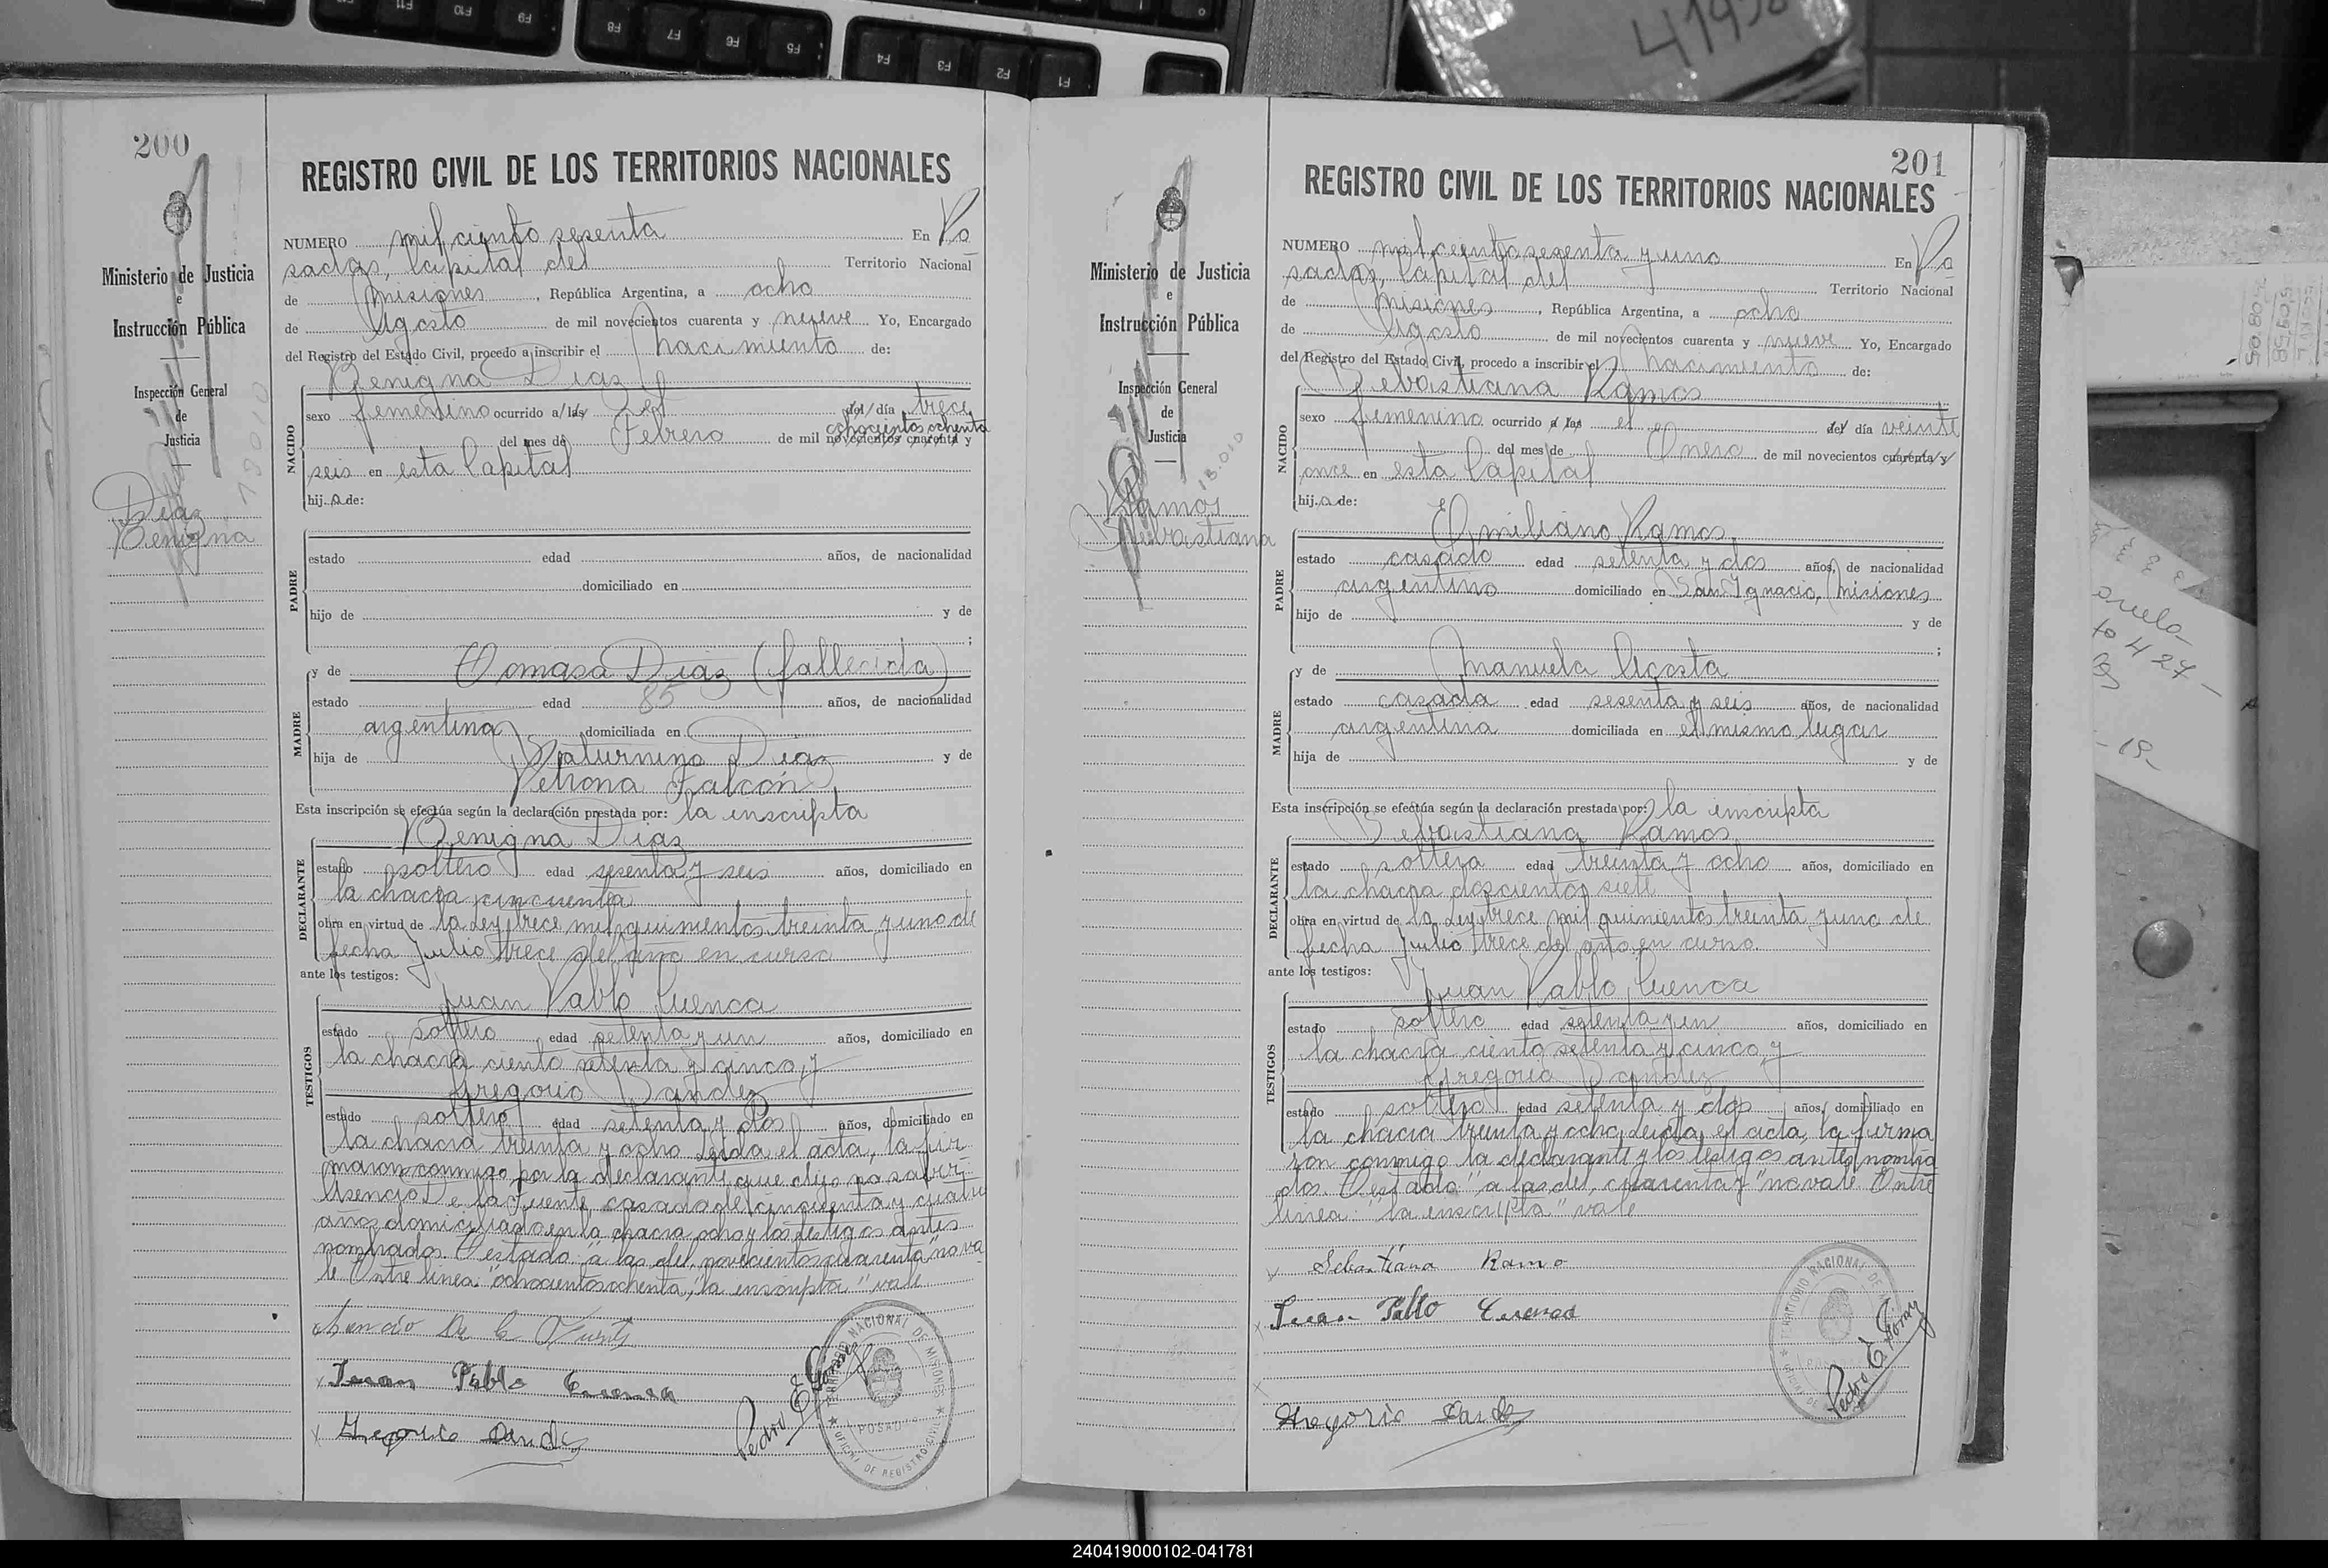 200
REGISTRO CIVIL DE LOS TERRITORIOS NACIONALES
Ministerio de Justicia
e
Instrucción Pública
Inspección General
de
Justicia
Diaz
Benigna
NUMERO mil ciento sesenta En Po
sadas, Capital del Territorio Nacional
de Misiones, República Argentina, a ocho
de Agosto de mil novecientos cuarenta y nueve Yo, Encargado
del Registro del Estado Civil, procedo a inscribir el nacimiento de:
Benigna Diaz
NACIDO
sexo femenino ocurrido a/las el del/día trece
ochocientos ochenta
del mes de Febrero de mil novecientos cuarenta y
seis en esta Capital
hij a de:
PADRE
estado edad años, de nacionalidad
domiciliado en
hijo de y de
;
MADRE
y de Tomasa Diaz (fallecida)
estado edad 85 años, de nacionalidad
argentina domiciliada en
hija de Saturnino Diaz y de
Petrona Falcón
Esta inscripción se efectúa según la declaración prestada por: la inscripta
Benigna Diaz
DECLARANTE
estado soltero edad sesenta y seis años, domiciliado en
la chacra cincuenta
obra en virtud de la Ley trece mil quinientos treinta y uno de
fecha Julio trece del año en curso
ante los testigos:
Juan Pablo Cuenca
TESTIGOS
estado soltero edad setenta y un años, domiciliado en
la chacra ciento setenta y cinco, y
Gregorio Sandez
estado soltero edad setenta y dos años, domiciliado en
la chacra treinta y ocho Leida el acta, la fir
maron conmigo, por la declarante que dijo no saber:
Asencio De la Fuente casado de cincuenta y cuatro
años domiciliado en la chacra ocho y los testigos antes
nombrados. Testado: "a las del, novecientos cuarenta" no va
le Entre linea "ochocientos ochenta, "la inscripta" vale
Juan Pablo Cuenca
Gregorio Sandez
Pedro E. Gomez
TERRITORIO NACIONAL DE MISIONES
POSADAS
OFICINA DE REGISTRO CIVIL
201
REGISTRO CIVIL DE LOS TERRITORIOS NACIONALES
Ministerio de Justicia
e
Instrucción Pública
Inspección General
de
Justicia
18.010
Ramos
Sebastiana
NUMERO mil ciento sesenta y uno En Po
sadas, Capital del Territorio Nacional
de Misiones, República Argentina, a ocho
de Agosto de mil novecientos cuarenta y nueve Yo, Encargado
del Registro del Estado Civil, procedo a inscribir el nacimiento de:
Sebastiana Ramos
NACIDO
sexo femenino ocurrido a las el del día veinte
del mes de Enero de mil novecientos cuarenta y
once en esta Capital
hij a de:
PADRE
Emiliano Ramos
estado casado edad setenta y dos años, de nacionalidad
argentino domiciliado en San Ignacio, Misiones
hijo de y de
;
MADRE
y de Manuela Acosta
estado casada edad sesenta y seis años, de nacionalidad
argentina domiciliada en el mismo lugar
hija de y de
Esta inscripción se efectúa según la declaración prestada por: la inscripta
Sebastiana Ramos
DECLARANTE
estado soltera edad treinta y ocho años, domiciliado en
la chacra doscientos siete
obra en virtud de la Ley trece mil quinientos treinta y uno de
fecha Julio trece del año en curso
ante los testigos:
Juan Pablo Cuenca
TESTIGOS
estado soltero edad setenta y un años, domiciliado en
la chacra ciento setenta y cinco, y
Gregorio Sandez
estado soltero edad setenta y dos años, domiciliado en
la chacra treinta y ocho, Leida el acta, la firma
ron conmigo la declarante y los testigos antes nombra
dos. Testado "a las del, cuarenta y" no vale. Entre
linea: "la inscripta" vale
Sebastiana Ramo
Juan Pablo Cuenca
Gregorio Sandez
Pedro E. Gomez
TERRITORIO NACIONAL DE
240419000102-041781